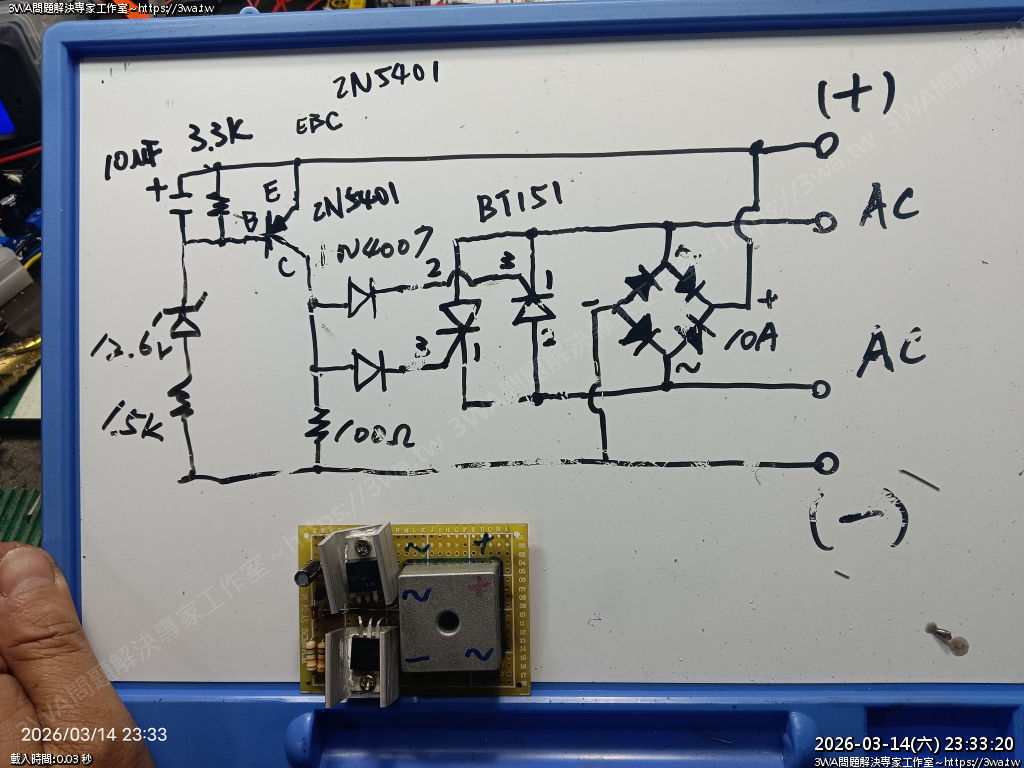 3WA問題解決專家工作室~https://3wa.tw
2N5401
EBC
(+)
10uF
3.3K
+
E
B
C
2N5401
BT151
AC
1N4007
2
3
1
~
-
+
12.6v
3
1
2
10A
~
AC
1.5K
100Ω
(-)
~
+
~
+
-
~
2026/03/14 23:33
載入時間:0.03 秒
2026-03-14(六) 23:33:20
3WA問題解決專家工作室~https://3wa.tw